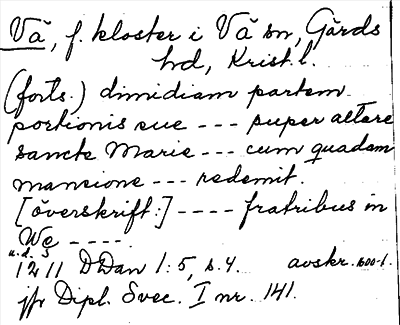 Vä, f. kloster i Vä sn, Gärds
hd, Krist. l.
(forts.) dimidiam partem
portionis sue --- super altare
sancte Marie --- cum quadam
mansione --- redemit.
[överskrift:] ---- fratribus in
We ----.
u. d. s
1211 DDan 1:5, s. 4. avskr. 1600-t.
jfr Dipl. Svec. I nr. 141.